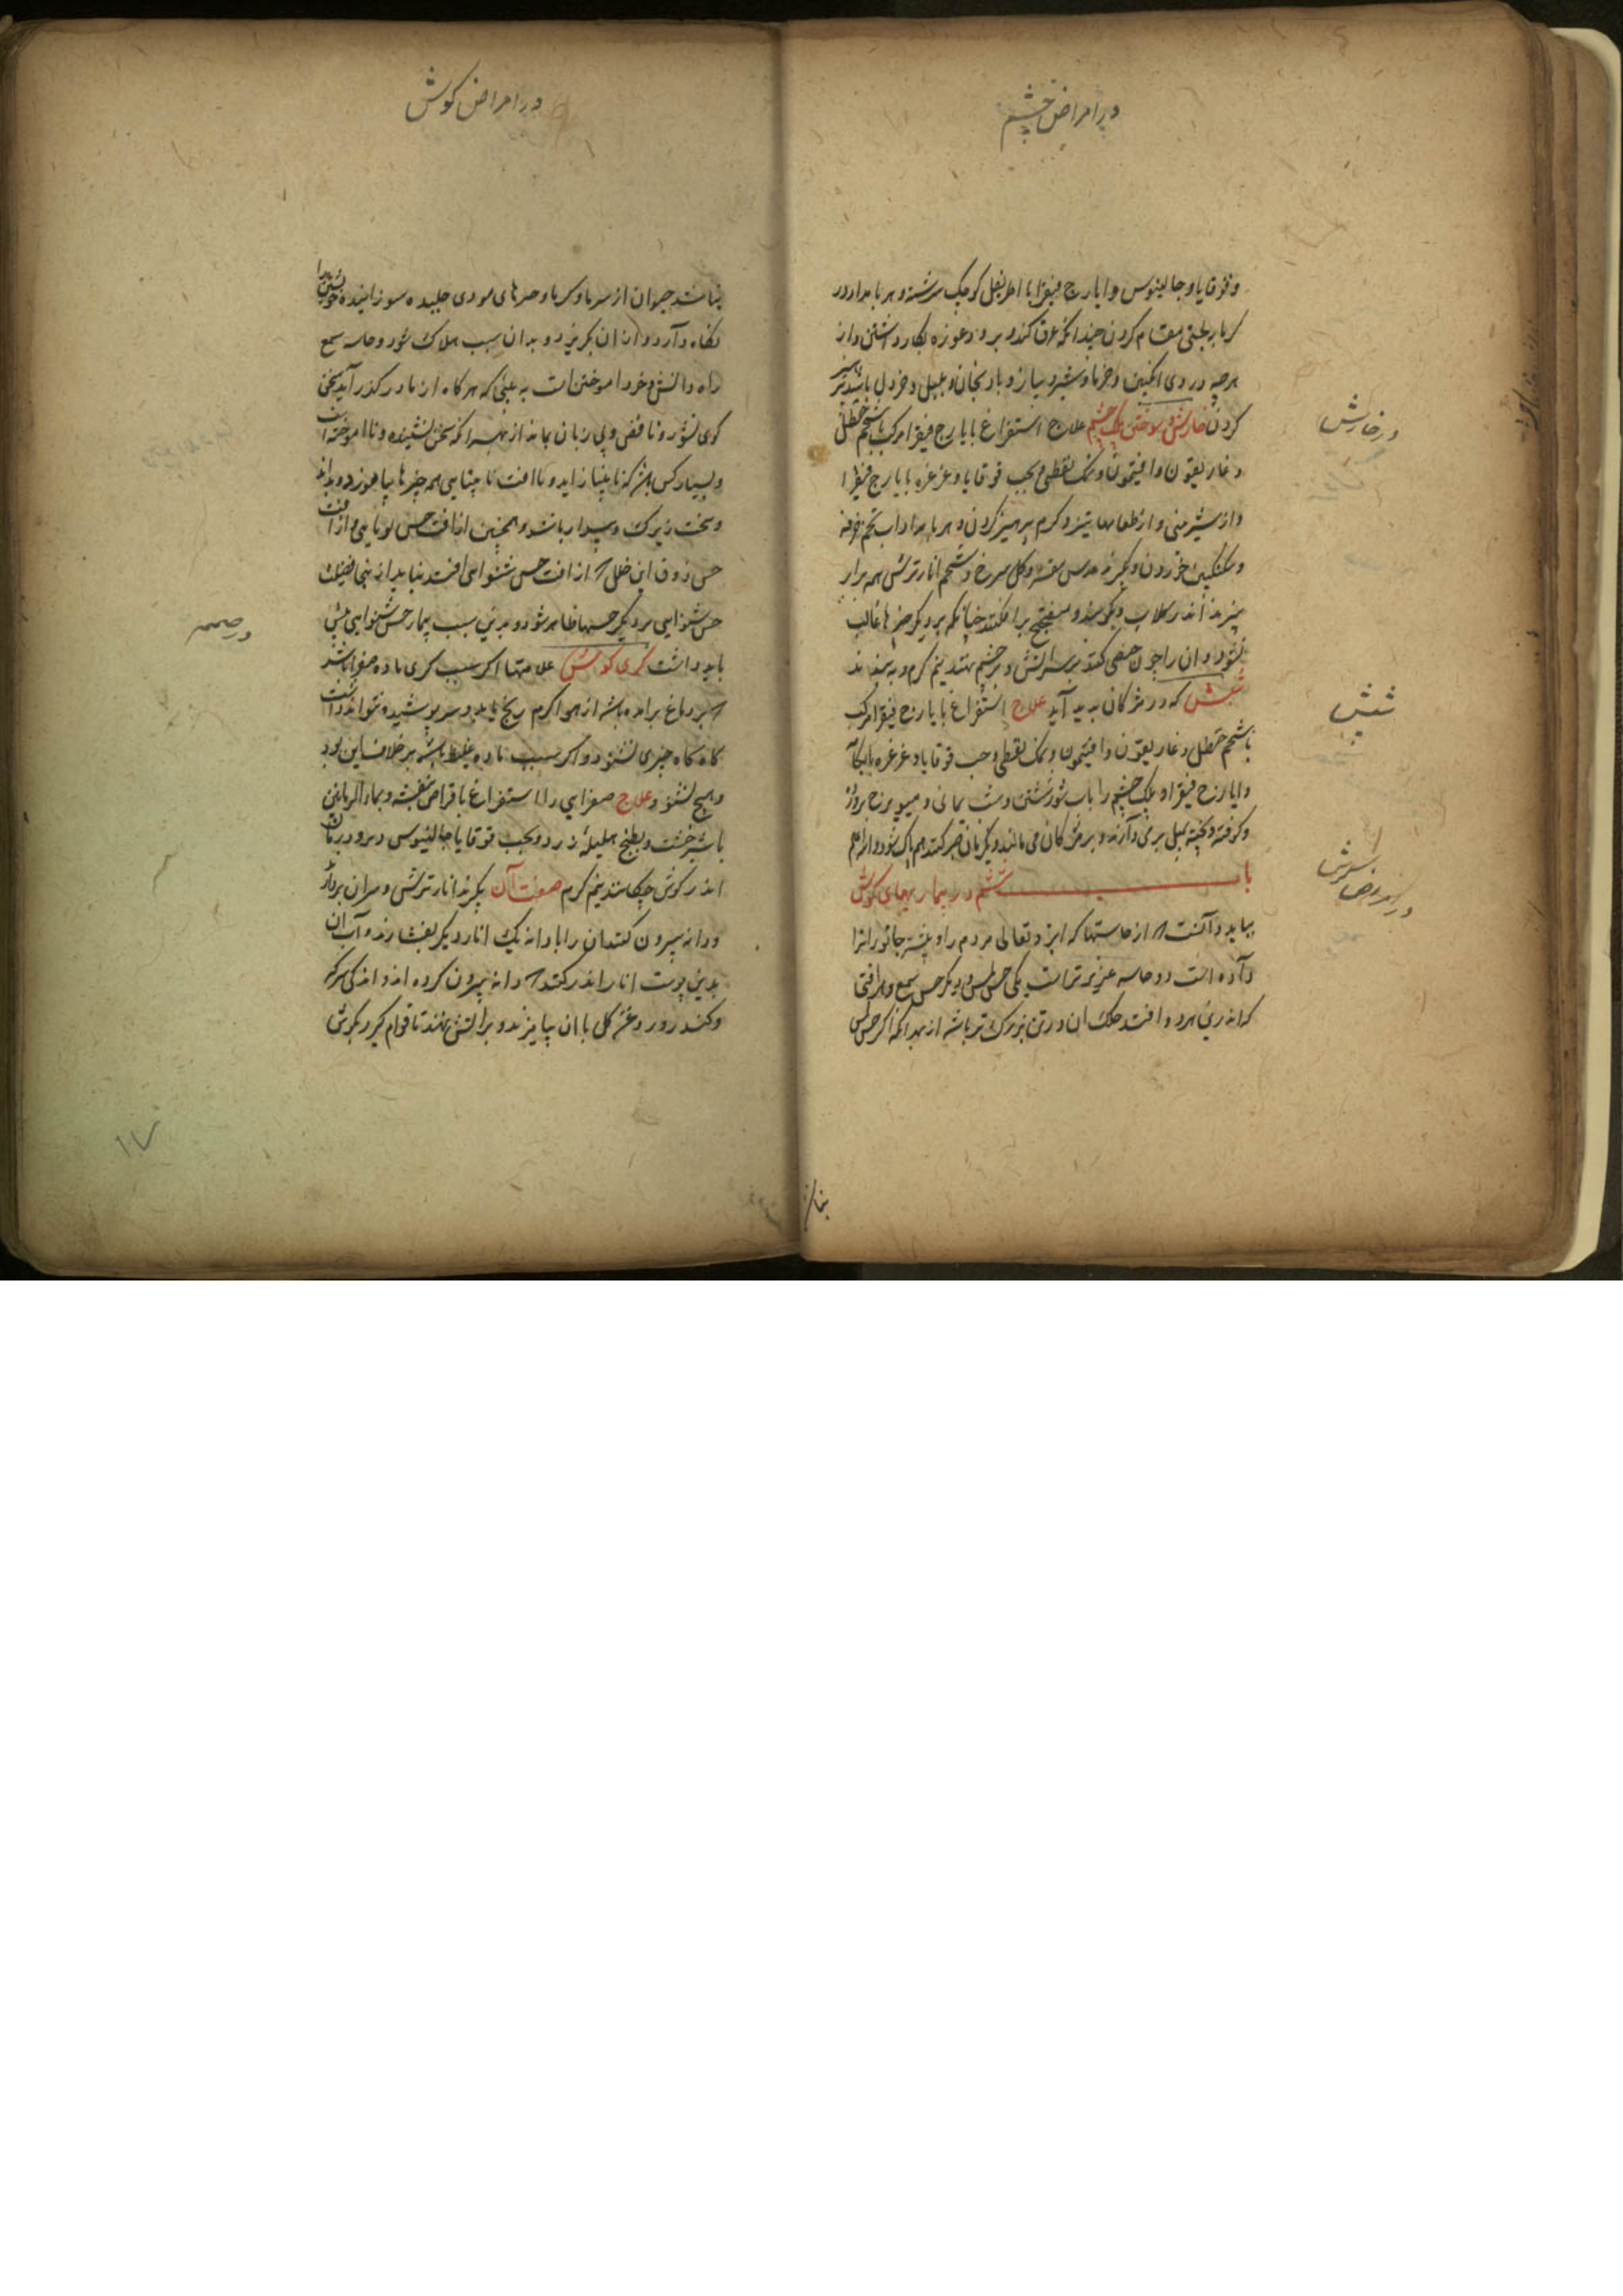 در امراض چشم
وقوقایا و جالینوس و ایارج فیقرا با اطریفل کوچک سرشته و هر بامداد در
کرمابه بعتی مقام کردن چندانکه عرق کند و برود و غوزه بکار داشتن و از
هرچه در وی انکبین و خرما و شیر و پیاز و بادنجان و پلپل و خردل باشد پرهیز
کردن خارش و سوختن پلک چشم علاج استفراغ بایارج فیقرا مرکب با شحم حنظل
و غاریقون و افیتمون و نمک نفطی و بحب قوقایا و غرغره بایارج فیقرا
و از شیرینی و از طعامهاء تیز و کرم پرهیز کردن و هر بامداد آب تخم خرفه
و سکنکبین خوردن و بکیرند عدس مقشر و کل سرخ و شحم انار ترش همه برابر
بپزند اندر کلاب و بکوبند و میفختج برافکنند چنانکه بر دیکر چیزها غالب
نشود و ان را چون مرهمی کنند بر آتش و بر چشم نهند نیم کرم و ببندند
شپش که در مژکان پدید آید علاج استفراغ بایارج فیقرا مرکب
با شحم حنظل و غاریقون و افیتمون و نمک نفطی و حب قوقایا و غرغره با
و ایارج فیقرا و پلک چشم را باب شور شستن و شب یمانی و میویزج
و کوفته و بیخته بمیل بر می دارند و بر مژکان می مالند و یکزمان صبر کنند هم پاک شود والله اعلم
باب ششم در بیماریهای کوش
بباید دانست که از حاستها که ایزد تعالی مردم را و بیشتر جانوران را
داده است دو حاسه عزیزتر است یکی حس لمس و دیکر حس سمع و هر آفتی
که اندرین هر دو افتد هلاک ان در تن بزرک تر باشد از بهر انکه اکر حس لمس
در خارش
شپش
در امراض کوش
نباشد حیوان از سرما و کرما و چیزهای موذی جلیده سوزاننده خویشتن را
نکاه دارد و ازان بکریزد و بدان سبب هلاک شود و حاسه سمع
راه دانش و خرد اموختن است به علتی که هرکاه از مادر کذر آید سخن
کوی نشود و ناقص و بی زبان بماند از بهر انکه سخن نشنیده و نااموخته است
و بسیار کس باشد که نابینا زاید و باافت نابینایی همه چیزها بیاموزد و بداند
و سخت زیرک و بیدار باشد و همچنین از افت حس بویایی و از افت
حس ذوق این خلل که از افت حس شنوایی افتد نیاید ازینجا فضیلت
حس شنوایی بر دیکر حسها ظاهر شود و بدین سبب تیمار حس شنوایی بیش
باید داشت کری کوش علامتها اکر سبب کری ماده صفرا باشد
که بر دماغ برامده باشد از هوا کرم رنج یابد و سر پوشیده نتواند داشت
کاه کاه چیزی بشنود و اکر سبب ماده غلیظ باشد بر خلاف این بود
و هیچ نشنود و علاج صفرایی را استفراغ باقراص بنفشه و بماء الرمانین
با شیرخشت و بطبخ هلیله زرد و بحب قوقایا جالینوس و سرو
اندر کوش چکانند نیم کرم صفت آن بکیرند انار ترش و سران بردارند
و دانه بیرون کنند ان را با دانه یک انار دیکر بفشارند و آب ان
بدین پوست انار اندر کنند که دانه بیرون کرده اند و اندکی سرکه
و کندر و روغن کل با ان بیامیزند و بر آتش نهند تا قوام کیرد و بکوش
در صمم
۱۷